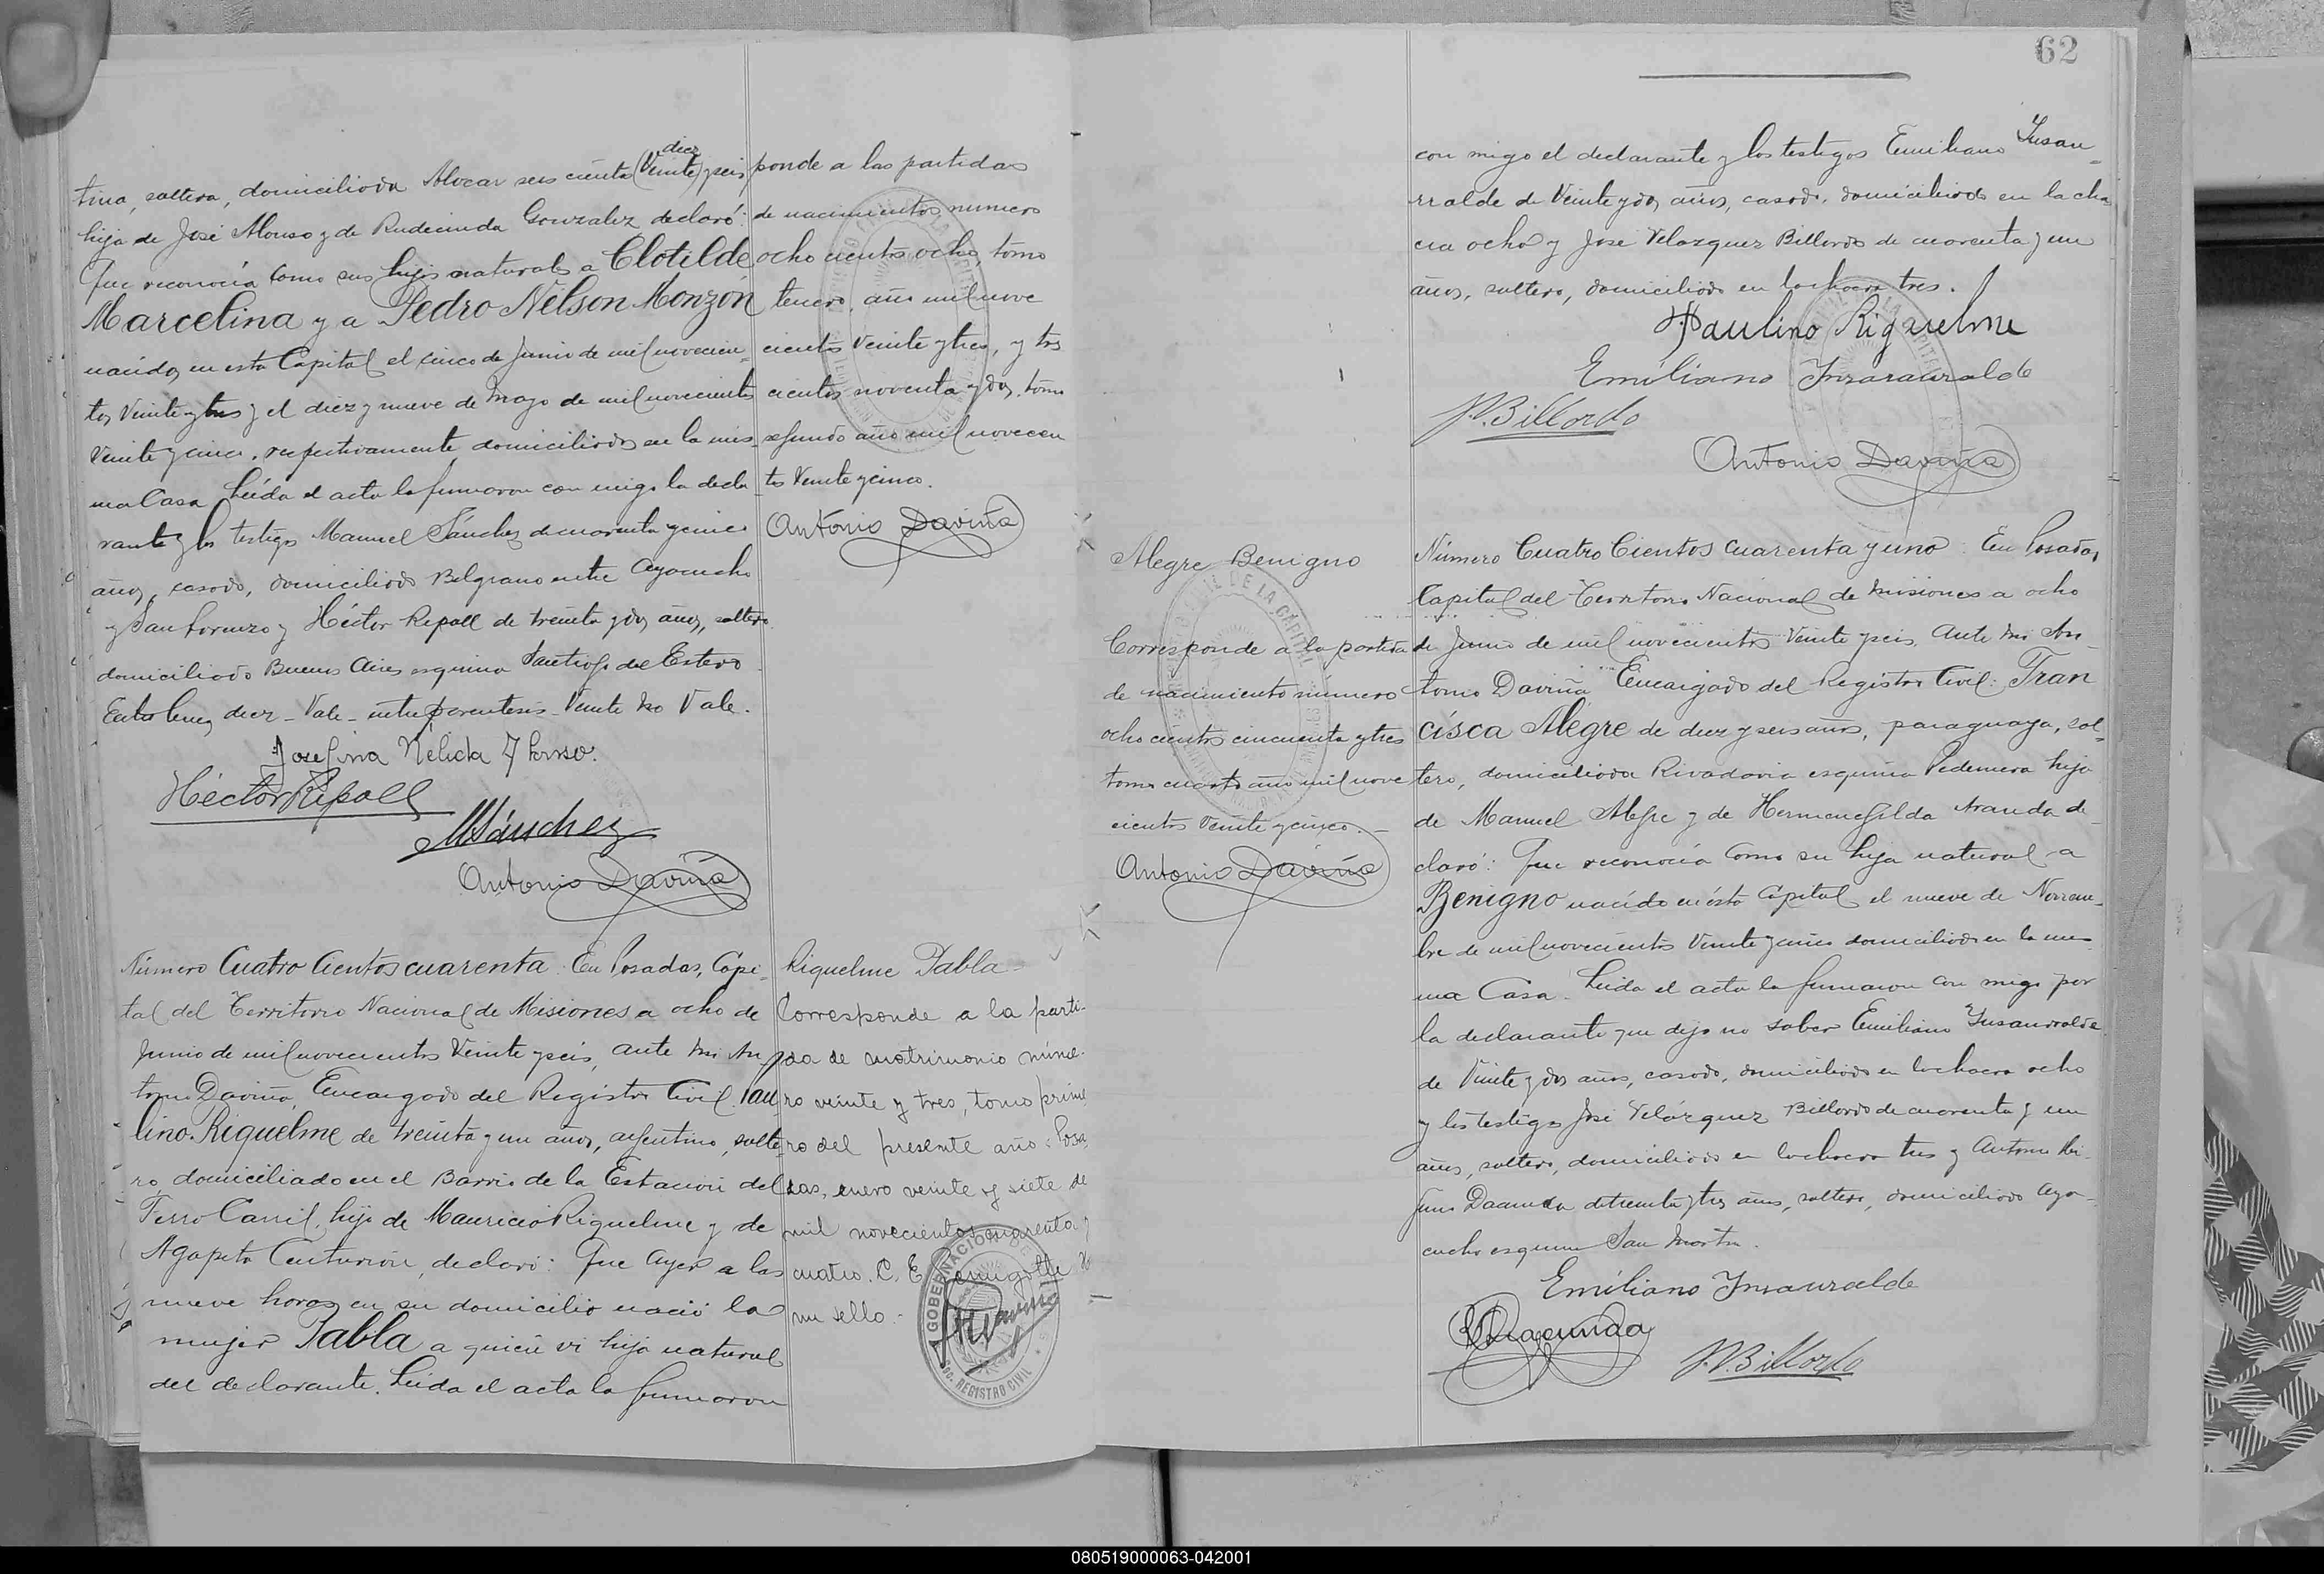 tina, soltera, domiciliada Alvear seis cientos (Veinte) diez y seis
hija de José Alonso y de Rudecinda Gonzalez declaró:
Que reconocía como sus hijos naturales a Clotilde
Marcelina y a Pedro Nélson Monzón
nacidos en esta Capital el cinco de Junio de mil novecien
tos Veinte y tres y el diez y nueve de Mayo de mil novecientos
Veinte y cinco, respectivamente, domiciliados en la mis
ma Casa. Leída el acta la firmaron con migo la decla
rante y los testigos Manuel Sánchez de cuarenta y cinco
años, casado, domiciliado Belgrano entre Ayacucho
y San Lorenzo y Héctor Repoll de treinta y dos años, soltero
domiciliado Buenos Aires esquina Santiago del Estero
Entre lineas diez - Vale - entre parentesis - Veinte No Vale.
Josefina Nélida Alonso.
Héctor Repoll
M Sánchez
Antonio Daviña
ponde a las partidas
de nacimientos número
ocho cientos ocho, tomo
tercero, año mil nove
cientos Veinte y tres, y tres
cientos noventa y dos, tomo
segundo año mil novecien
tos Veinte y cinco.
Antonio Daviña
Número Cuatro Cientos cuarenta. En Posadas, Capi
tal del Territorio Nacional de Misiones a ocho de
Junio de mil novecientos Veinte y seis, ante mi An
tonio Daviña, Encargado del Registro Civil. Pau
lino Riquelme de treinta y un años, argentino, solte
ro domiciliado en el Barrio de la Estación del
Ferro Carril, hijo de Mauricio Riquelme y de
Agapita Centurión, declaró: Que ayer a las
nueve horas en su domicilio nació la
mujer Pabla a quien vi hija natural
del declarante. Leida el acta la firmaron
Riquelme Pabla
Corresponde a la parti-
da de matrimonio núme-
ro veinte y tres, tomo prime
ro del presente año. Posa
das, enero veinte y siete de
mil novecientos cuarenta y
cuatro. C. E.
mi sello.-
GOBERNACION DE
REGISTRO CIVIL
62
con migo el declarante y los testigos Emiliano Insau
rralde de Veinte y dos años, casado, domiciliado en la cha
cra ocho y José Velazquez Billordo de cuarenta y un
años, soltero, domiciliado en la chacra tres.
Paulino Riquelme
Emiliano Insaurralde
J.V. Billordo
Antonio Daviña
Alegre Benigno
Corresponde a la partida
de nacimiento número
ocho cientos cincuenta y tres
tomo cuarto año mil nove
cientos Veinte y cinco.-
Antonio Daviña
Número Cuatro Cientos cuarenta y uno. En Posadas,
Capital del Territorio Nacional de Misiones a ocho
de Junio de mil novecientos Veinte y seis, Ante mi An
tonio Daviña Encargado del Registro Civil: Fran
cisca Alegre de diez y seis años, paraguaya, sol
tera, domiciliada Rivadavia esquina Pedernera hija
de Manuel Alegre y de Hermenegilda Aranda de
claró: Que reconocía como su hijo natural a
Benigno nacido en ésta Capital el nueve de Noviem
bre de mil novecientos Veinte y cinco domiciliado en la mis
ma Casa. Leida el acta la firmaron con migo por
la declarante que dijo no saber Emiliano Insaurralde
de Veinte y dos años, casado, domiciliado en la chacra ocho
y los testigos José Velázquez Billordo de cuarenta y un
años, soltero, domiciliado en la chacra tres y Antonio
de treinta y tres años, soltero, domiciliado Aya
cucho esquina San Martin.
Emiliano Insaurralde
J.V. Billordo
080519000063-042001